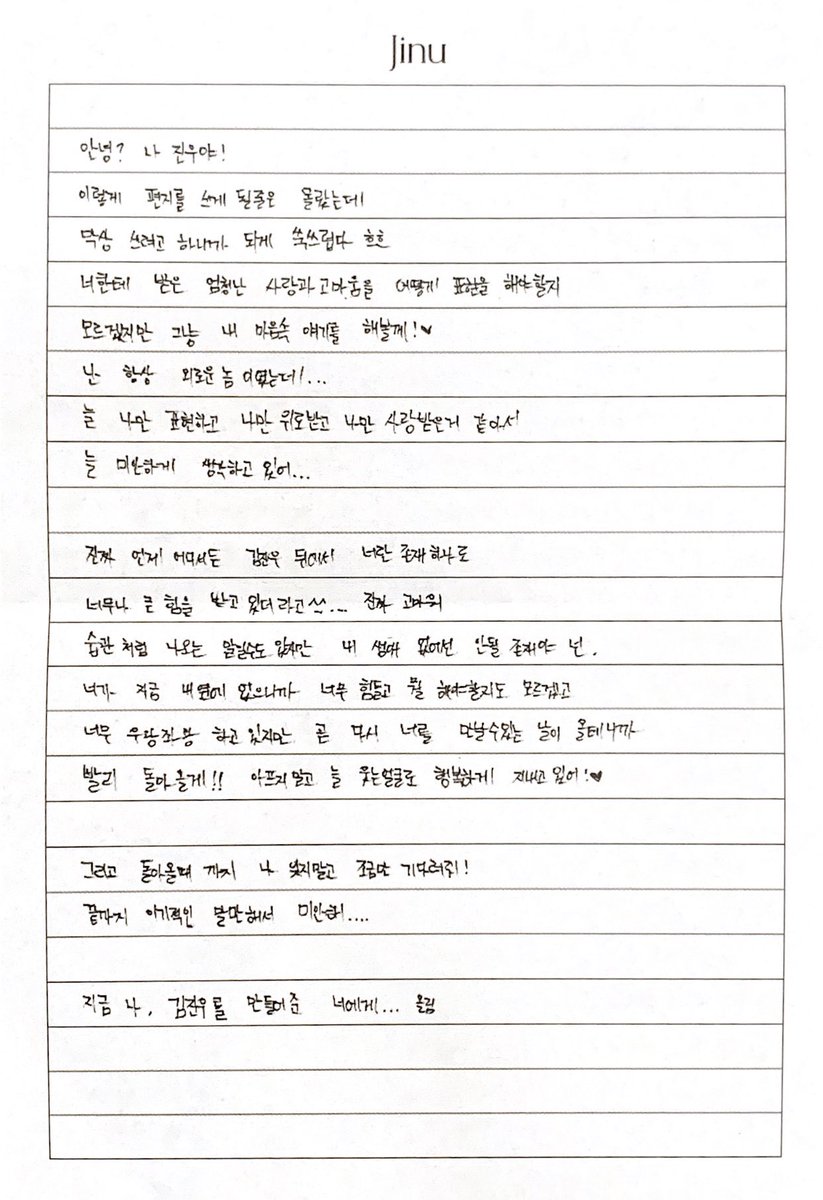 Jinu
안녕? 나 진우야!
이렇게 편지를 쓰게 될줄은 몰랐는데
막상 쓰려고 하니까 되게 쑥쓰럽다 흐흐
너한테 받은 엄청난 사랑과 고마움을 어떻게 표현을 해야할지
모르겠지만 그냥 내 마음속 얘기를 해볼게!♥
난 항상 외로운 놈이였는데!...
늘 나만 표현하고 나만 위로받고 나만 사랑받은거 같아서
늘 미안하게 생각하고 있어...
진짜 언제 어디서든 김진우 뒤에서 너란 존재 하나로
너무나 큰 힘을 받고 있더라고 난... 진짜 고마워
습관처럼 나오는 말일수도 있지만 내 생애 없어선 안될 존재야 넌.
너가 지금 내 옆에 없으니까 너무 힘들고 뭘 해야할지도 모르겠고
너무 우왕좌왕 하고 있지만 곧 다시 너를 만날수있는 날이 올테니까
빨리 돌아올게!! 아프지말고 늘 웃는얼굴로 행복하게 지내고 있어!♥
그리고 돌아올때 까지 나 잊지말고 조금만 기다려줘!
끝까지 이기적인 말만해서 미안해....
지금 나, 김진우를 만들어준 너에게... 올림